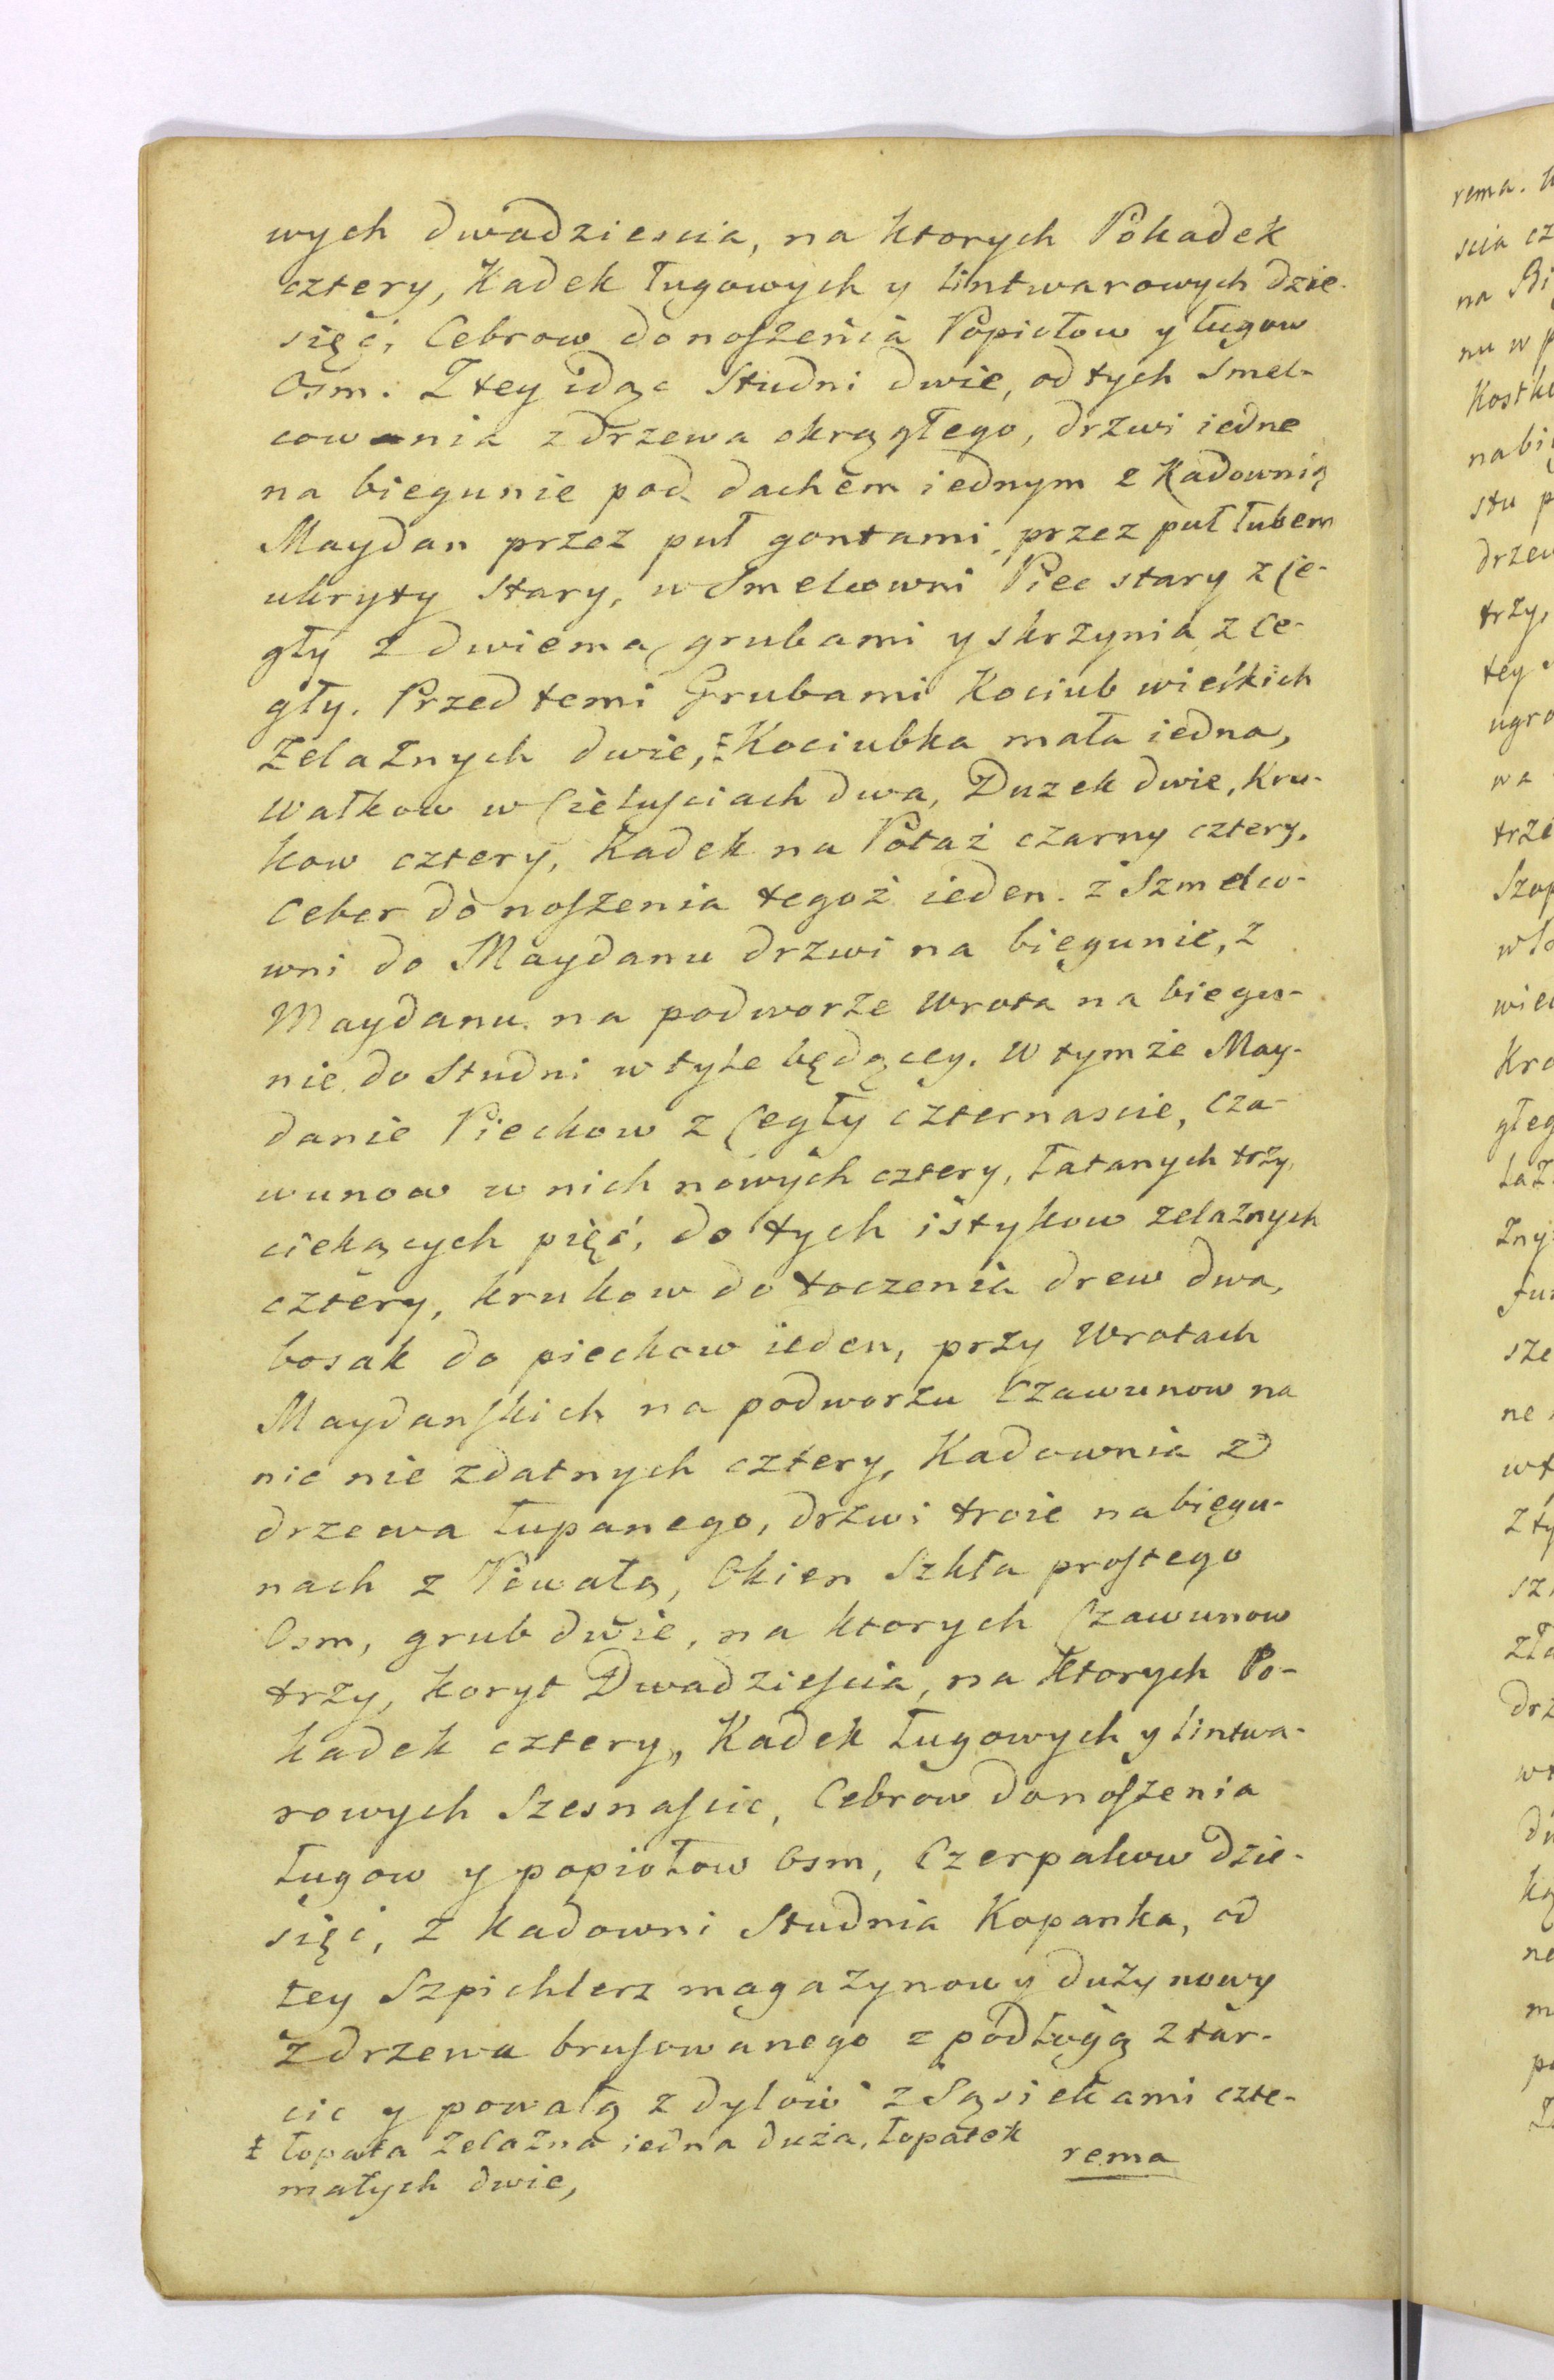 wych dwadziescia, na ktorych Pokadek
cztery, Kadek ługowych y Lintwarowych dzie-
sięć, Cebrow do noszenia Popiołow y ługow
Osm. Z tey idąc Studni dwie, od tych Smel-
cownia z drzewa okrągłego, drzwi iedne
na biegunie pod dachem iednym z Kadownią
Maydan przez puł gontami, przez puł łubem
ukryty Stary, w Smelcowni Piec stary z Ce-
gły z dwiema grubami y skrzynia z Ce-
gły. Przed temi Grubami Kociub wielkich
Zelaznych dwie, ‡ Kociubka mała iedna,
Wałkow w Czeluściach dwa, Duzek dwie, Kru-
kow cztery, Kadek na Potaż czarny cztery,
Ceber do noszenia tegoż ieden. z Szmelco-
wni do Maydanu drzwi na biegunie, z
Maydanu na podworze Wrota na biegu-
nie do Studni w tyle będącey. W tymże May-
danie Piecków z Cegły czternascie, Cza-
wunow w nich nowych cztery, łatanych trzy,
ciekących pięć, do tych istykow zelaznych
cztery, krukow do toczenia drew dwa,
bosak do pieckow ieden, przy Wrotach
Maydanskich na podworzu Czawunow na
nic nie zdatnych cztery, Kadownia z
drzewa łupanego, drzwi troie na biegu-
nach z Powałą, Okien Szkła prostego
Osm, grub dwie, na ktorych Czawunow
trzy, koryt Dwadziescia, na ktorych Po-
kadek cztery, Kadek ługowych y Lintwa-
rowych Szesnascie, Cebrow do noszenia
ługow y popiołow Osm, Czerpakow dzie-
sięć, z kadowni Studnia Kopanka, od
tey Szpichlerz magazynowy duży nowy
z drzewa brusowanego z podłogą z tar-
cic y powałą z dylow z Sąsiekami czte-
‡ łopata Zelazna iedna duża, łopatek
małych dwie,
rema